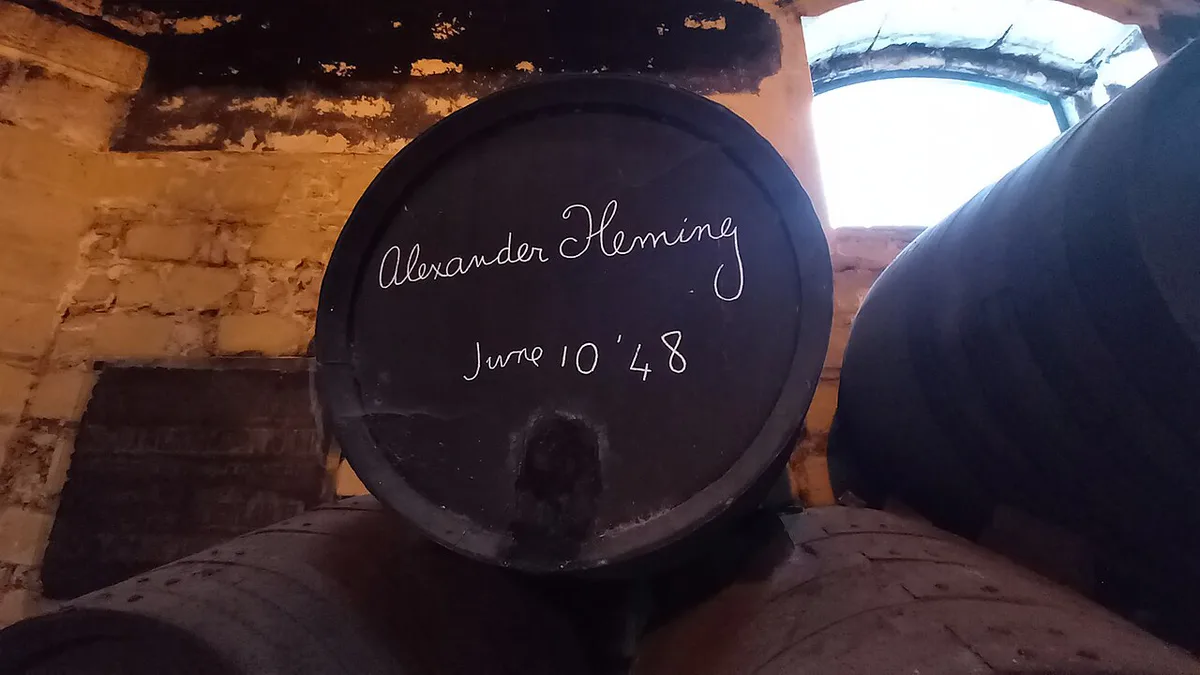 Alexander Fleming
June 10 '48